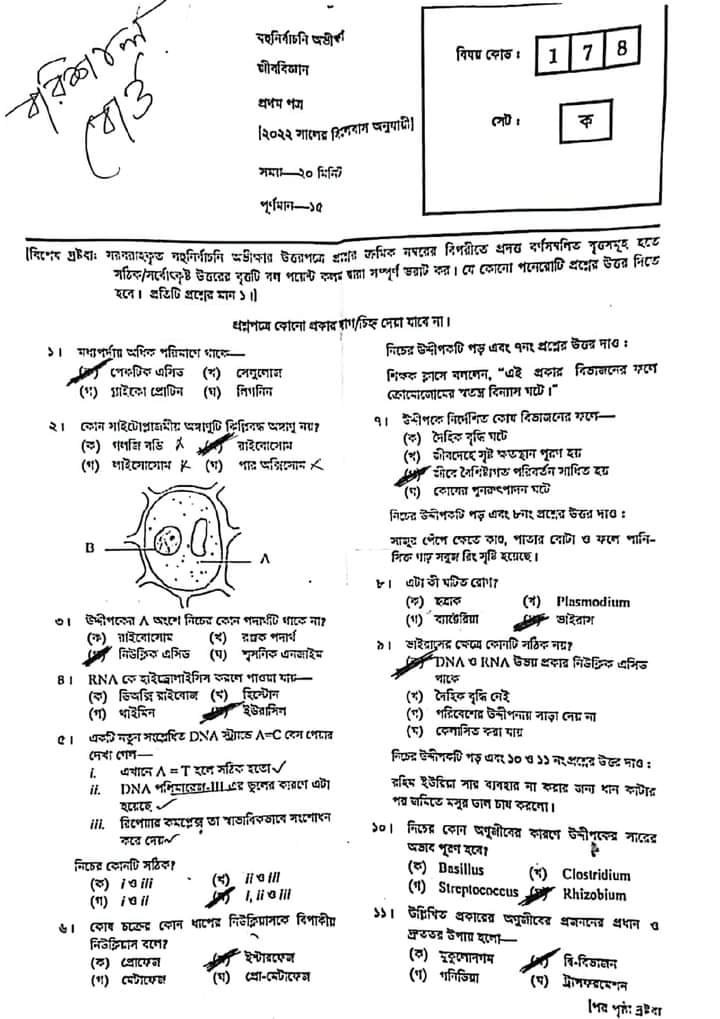 বরিশাল বোর্ড
বহুনির্বাচনি অভীক্ষা
জীববিজ্ঞান
প্রথম পত্র
[২০২২ সালের সিলেবাস অনুযায়ী]
সময়—২০ মিনিট
পূর্ণমান—১৫
বিষয় কোড : 1 7 8
সেট : ক
[বিশেষ দ্রষ্টব্য: সরবরাহকৃত বহুনির্বাচনি অভীক্ষার উত্তরপত্রে প্রশ্নের ক্রমিক নম্বরের বিপরীতে প্রদত্ত বর্ণসম্বলিত বৃত্তসমূহ হতে
সঠিক/সর্বোৎকৃষ্ট উত্তরের বৃত্তটি বল পয়েন্ট কলম দ্বারা সম্পূর্ণ ভরাট কর। যে কোনো পনেরোটি প্রশ্নের উত্তর দিতে
হবে। প্রতিটি প্রশ্নের মান ১।]
প্রশ্নপত্রে কোনো প্রকার দাগ/চিহ্ন দেয়া যাবে না।
১। মধ্যপর্দায় অধিক পরিমাণে থাকে—
পেকটিক এসিড (খ) সেলুলোজ
(গ) গ্লাইকো প্রোটিন (ঘ) লিগনিন
২। কোন সাইটোপ্লাজমীয় অঙ্গাণুটি ঝিল্লিবদ্ধ অঙ্গাণু নয়?
(ক) গলজি বডি রাইবোসোম
(গ) লাইসোসোম (ঘ) পার অক্সিসোম
B
A
৩। উদ্দীপকের A অংশে নিচের কোন পদার্থটি থাকে না?
(ক) রাইবোসোম (খ) রঞ্জক পদার্থ
নিউক্লিক এসিড (ঘ) শ্বসনিক এনজাইম
৪। RNA কে হাইড্রোলাইসিস করলে পাওয়া যায়—
(ক) ডিঅক্সি রাইবোজ (খ) হিস্টোন
(গ) থাইমিন ইউরাসিল
৫। একটি নতুন সংশ্লেষিত DNA স্ট্র্যান্ডে A=C বেস পেয়ার
দেখা গেল—
i. এখানে A = T হলে সঠিক হতো
ii. DNA পলিমারেজ-III এর ভুলের কারণে এটা
হয়েছে
iii. রিপেয়ার কমপ্লেক্স তা স্বাভাবিকভাবে সংশোধন
করে দেয়
নিচের কোনটি সঠিক?
(ক) i ও iii (খ) ii ও iii
(গ) i ও ii i, ii ও iii
৬। কোষ চক্রের কোন ধাপের নিউক্লিয়াসকে বিপাকীয়
নিউক্লিয়াস বলে?
(ক) প্রোফেজ ইন্টারফেজ
(গ) মেটাফেজ (ঘ) প্রো-মেটাফেজ
নিচের উদ্দীপকটি পড় এবং ৭নং প্রশ্নের উত্তর দাও :
শিক্ষক ক্লাসে বললেন, “এই প্রকার বিভাজনের ফলে
ক্রোমোজোমের স্বতন্ত্র বিন্যাস ঘটে।”
৭। উদ্দীপকে নির্দেশিত কোষ বিভাজনের ফলে—
(ক) দৈহিক বৃদ্ধি ঘটে
(খ) জীবদেহে সৃষ্ট ক্ষতস্থান পূরণ হয়
জীবে বৈশিষ্ট্যগত পরিবর্তন সাধিত হয়
(ঘ) কোষের পুনরুৎপাদন ঘটে
নিচের উদ্দীপকটি পড় এবং ৮নং প্রশ্নের উত্তর দাও :
সামুর পেঁপে ক্ষেতে কাণ্ড, পাতার বোটা ও ফলে পানি-
সিক্ত গাঢ় সবুজ রিং সৃষ্টি হয়েছে।
৮। এটা কী ঘটিত রোগ?
(ক) ছত্রাক (খ) Plasmodium
(গ) ব্যাক্টেরিয়া ভাইরাস
৯। ভাইরাসের ক্ষেত্রে কোনটি সঠিক নয়?
DNA ও RNA উভয় প্রকার নিউক্লিক এসিড
থাকে
(খ) দৈহিক বৃদ্ধি নেই
(গ) পরিবেশের উদ্দীপনায় সাড়া দেয় না
(ঘ) কেলাসিত করা যায়
নিচের উদ্দীপকটি পড় এবং ১০ ও ১১ নং প্রশ্নের উত্তর দাও :
রহিম ইউরিয়া সার ব্যবহার না করার জন্য ধান কাটার
পর জমিতে মসুর ডাল চাষ করলো।
১০। নিচের কোন অণুজীবের কারণে উদ্দীপকের সারের
অভাব পূরণ হবে?
(ক) Basillus (খ) Clostridium
(গ) Streptococcus Rhizobium
১১। উল্লিখিত প্রকারের অণুজীবের প্রজননের প্রধান ও
দ্রুততর উপায় হলো—
(ক) মুকুলোদগম দ্বি-বিভাজন
(গ) গনিডিয়া (ঘ) ট্রান্সফরমেশন
[পর পৃষ্ঠা দ্রষ্টব্য